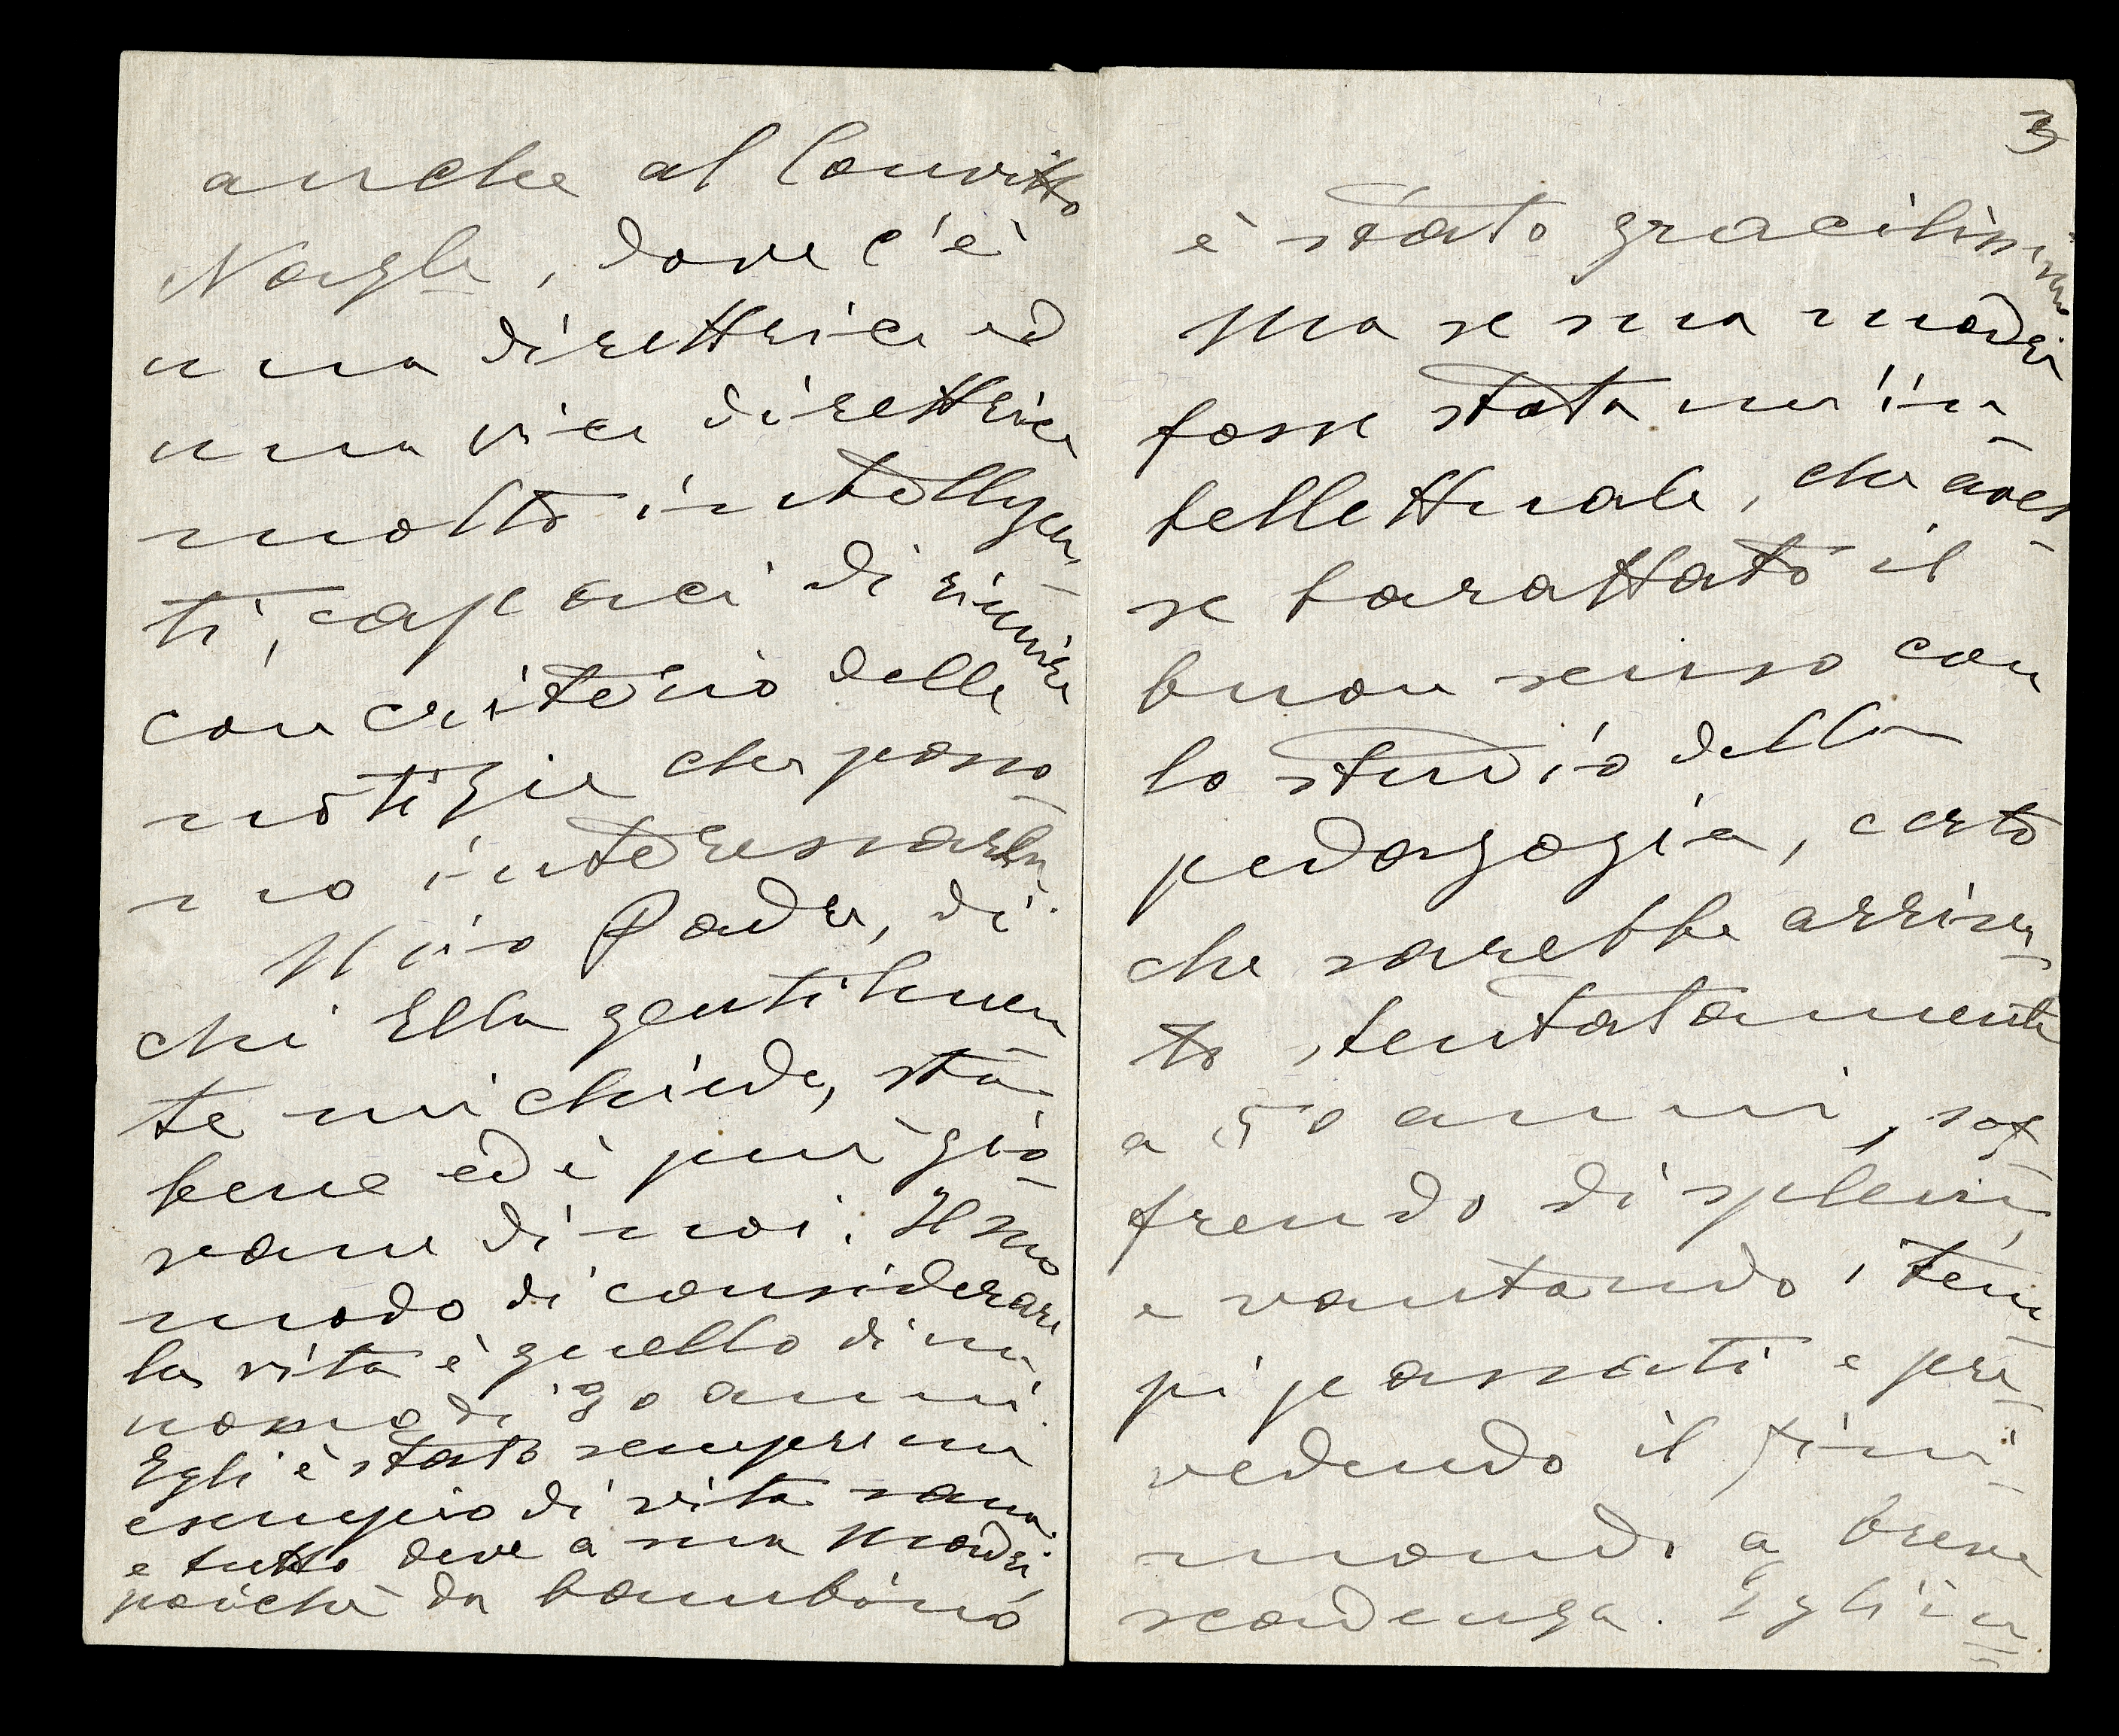 anche al Convitto
Naigle, dove c'è
una direttrice ed
una vice direttrice
molto intelligen-
ti, capaci di riunire
con criterio delle
notizie che posso-
no interessarla.
Mio Padre, di
chi Ella gentilmen-
te mi chiede, sta
bene ed è più gio-
vane di noi. Il suo
modo di considerare
la vita è quello di un
uomo di 30 anni.
Egli è stato sempre un
esempio di vita sana
e tutto deve a sua madre,
poiché da bambino
3
è stato gracilissimo
Ma se sua madre
fosse stata un'in-
tellettuale, che aves-
se barattato il
buon senso con
lo studio della
pedagogia, certo
che sarebbe arriva-
to stentatamente
a 50 anni, sof-
frendo di spleen,
e vantando i tem-
pi passati e pre-
vedendo il fini-
mondo a breve
scadenza. Egli in-